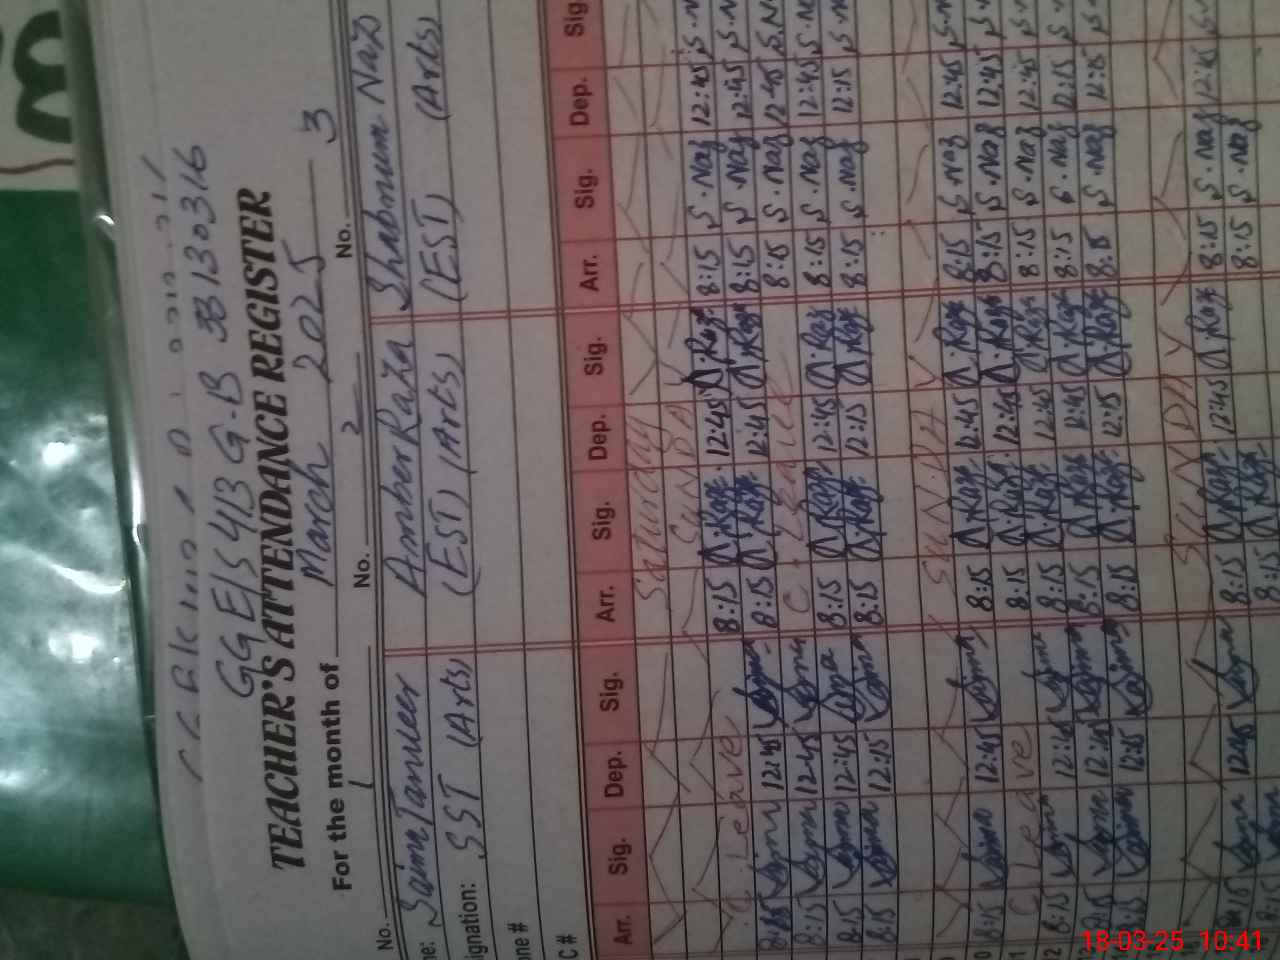 GGE/S 413 G-B 33130316
TEACHER'S ATTENDANCE REGISTER
For the month of March 2025
No. 1 No. 2 No. 3
Saima Tanveer Amber Raza Shabnum Naz
ignation: SST (Arts) (EST) (Arts) (EST) (Arts)
one #
C #
Arr. Sig. Dep. Sig. Arr. Sig. Dep. Sig. Arr. Sig. Dep. Sig
Saturday
SUNDAY
Leave 8:15 A.Raz 12:45 A.Raz 8:15 S.Naz 12:45
8:15 Saima 12:45 Saima 8:15 A.Raz 12:45 A.Raz 8:15 S.Naz 12:45
8:15 Saima 12:45 Saima C. Leave 8:15 S.Naz 12:45
8:15 Saima 12:45 Saima 8:15 A.Raz 12:45 A.Raz 8:15 S.Naz 12:45
8:15 Saima 12:15 Saima 8:15 A.Raz 12:15 A.Raz 8:15 S.Naz 12:15
SUNDAY
8:15 Saima 12:45 Saima 8:15 A.Raz 12:45 A.Raz 8:15 S.Naz 12:45
C Leave 8:15 A.Raz 12:45 A.Raz 8:15 S.Naz 12:45
8:15 Saima 12:45 Saima 8:15 A.Raz 12:45 A.Raz 8:15 S.Naz 12:45
8:15 Saima 12:15 Saima 8:15 A.Raz 12:45 A.Raz 8:15 S.Naz 12:15
8:15 Saima 12:15 Saima 8:15 A.Raz 12:15 A.Raz 8:15 S.Naz 12:15
SUNDAY
8:15 Saima 12:45 Saima 8:15 A.Raz 12:45 A.Raz 8:15 S.Naz 12:45
8:15 8:15 A.Raz 8:15 S.Naz
18-03-25 10:41